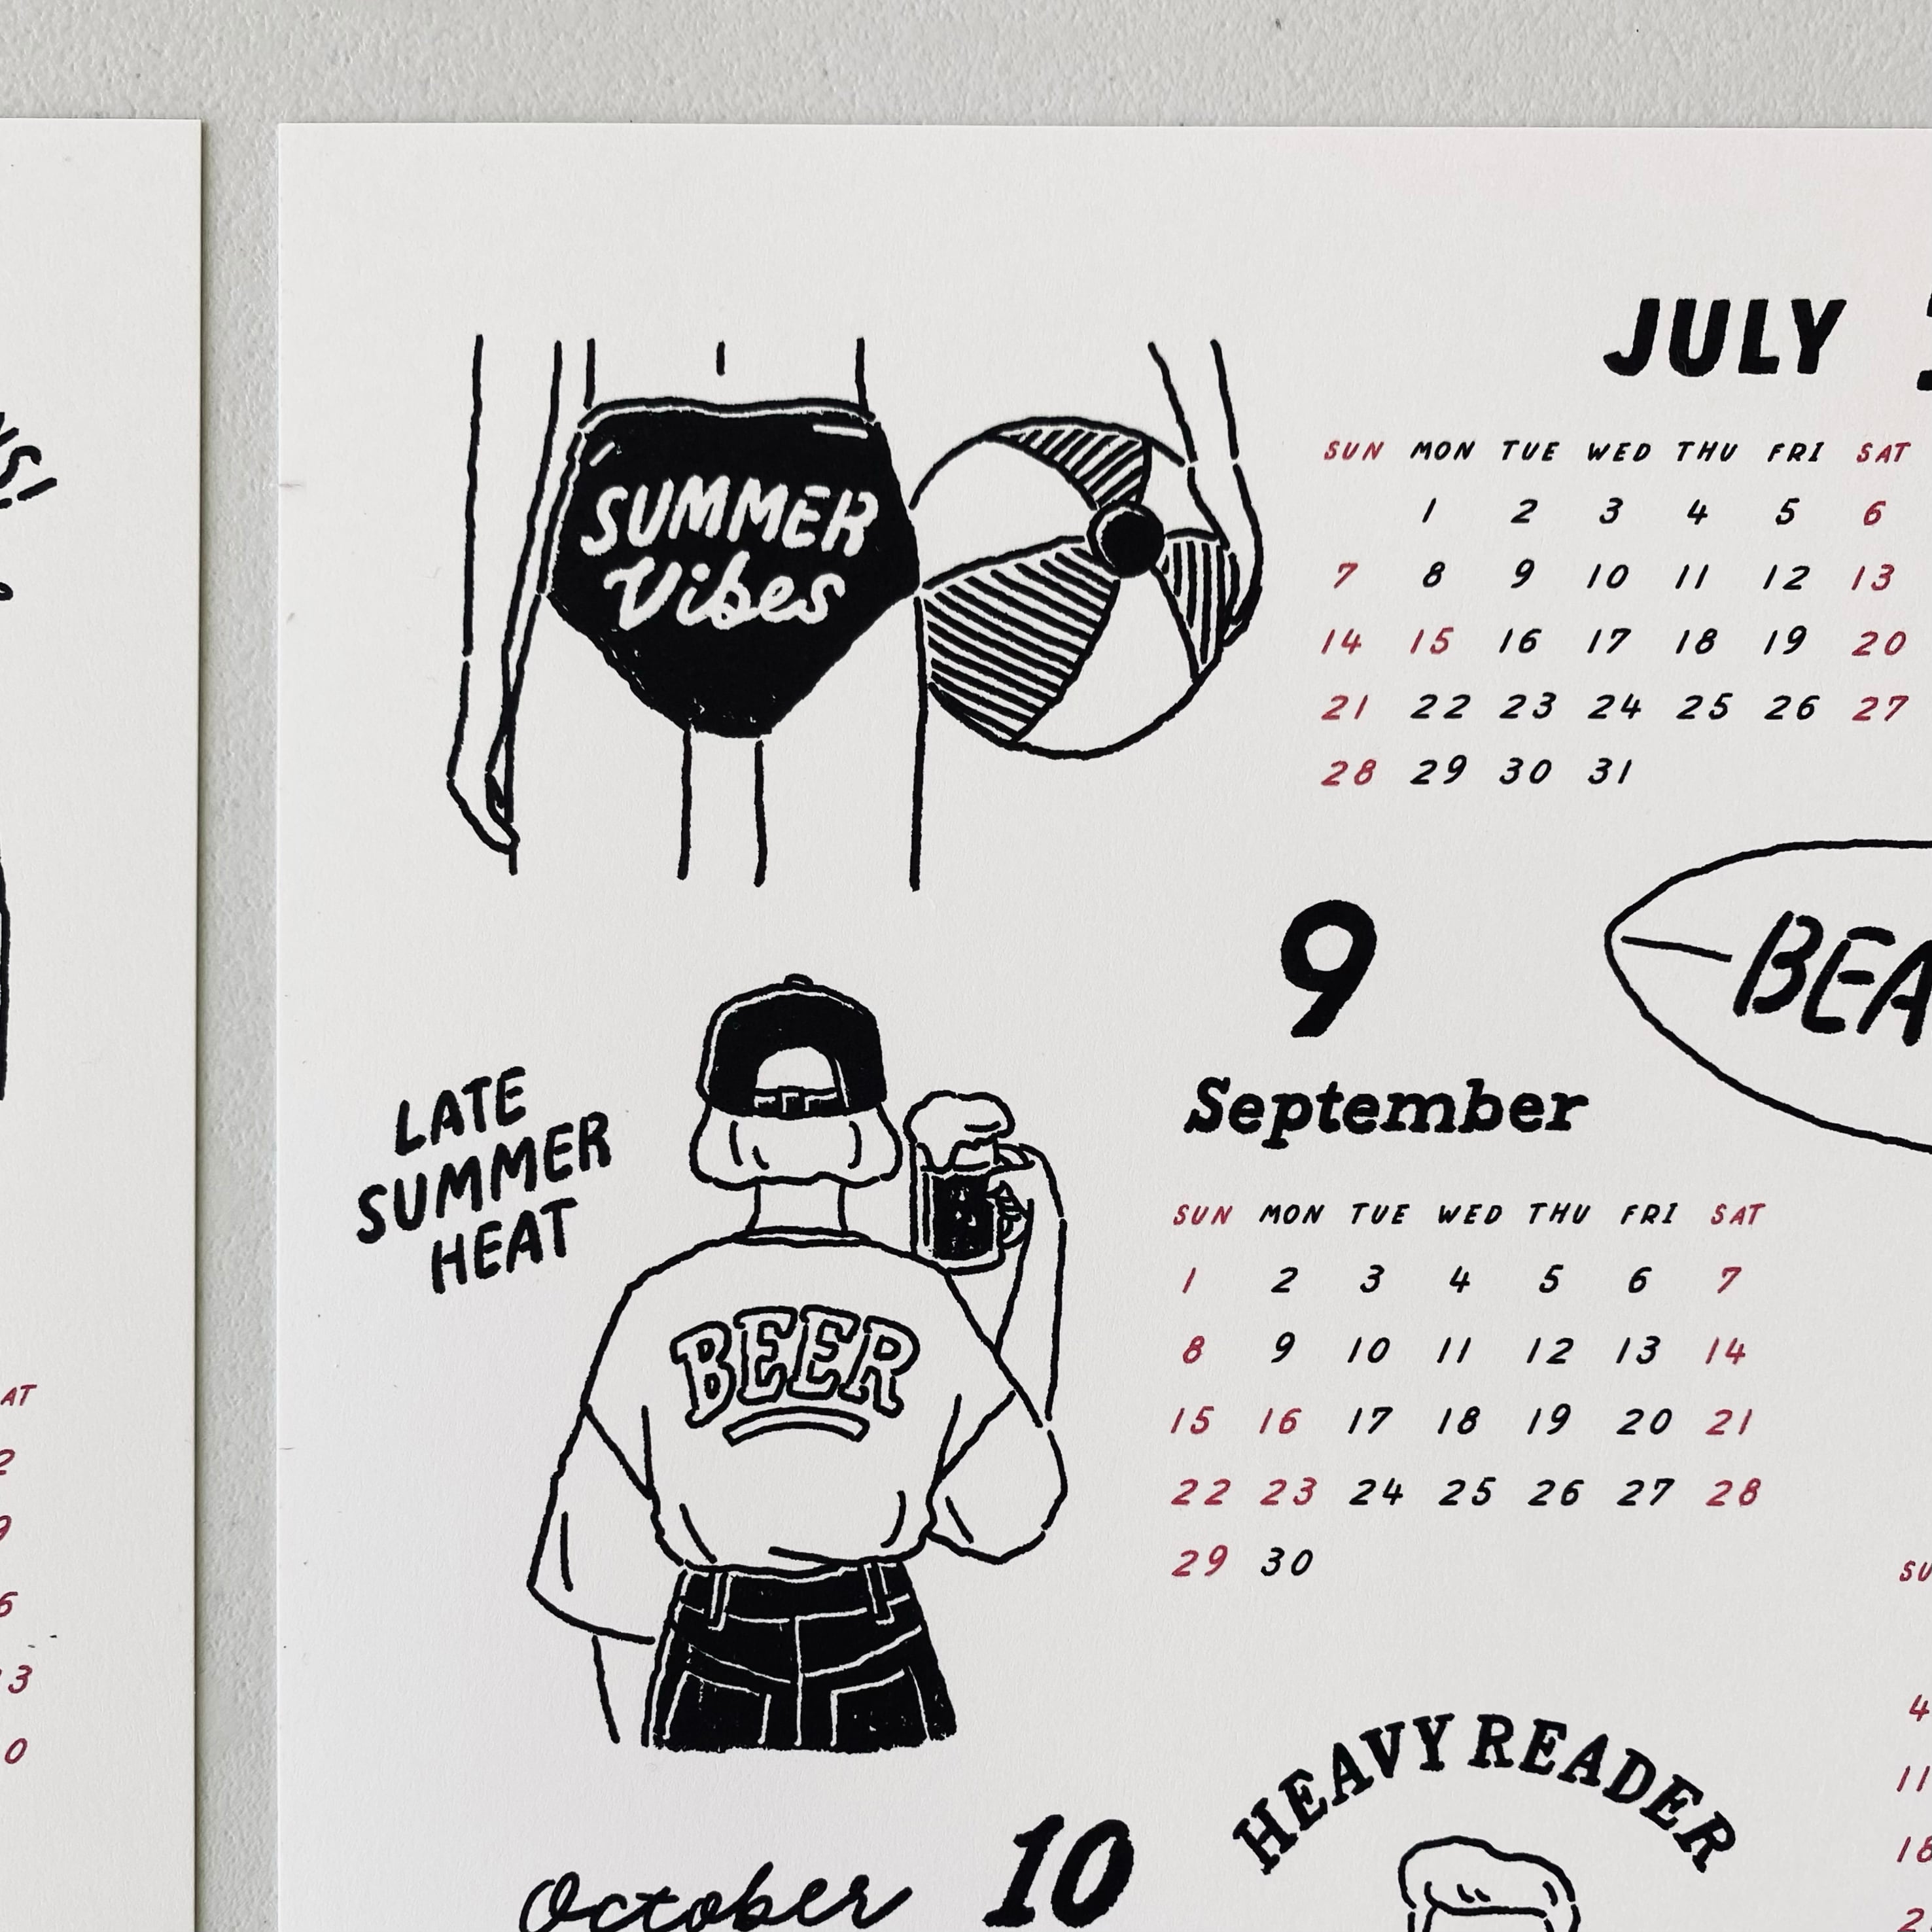 SUMMER
Vibes
JULY
SUN MON TUE WED THU FRI SAT
1 2 3 4 5 6
7 8 9 10 11 12 13
14 15 16 17 18 19 20
21 22 23 24 25 26 27
28 29 30 31
BEA
9
September
LATE
SUMMER
HEAT
BEER
SUN MON TUE WED THU FRI SAT
1 2 3 4 5 6 7
8 9 10 11 12 13 14
15 16 17 18 19 20 21
22 23 24 25 26 27 28
29 30
HEAVY READER
October 10
AT
2
9
6
3
0
SU
4
11
18